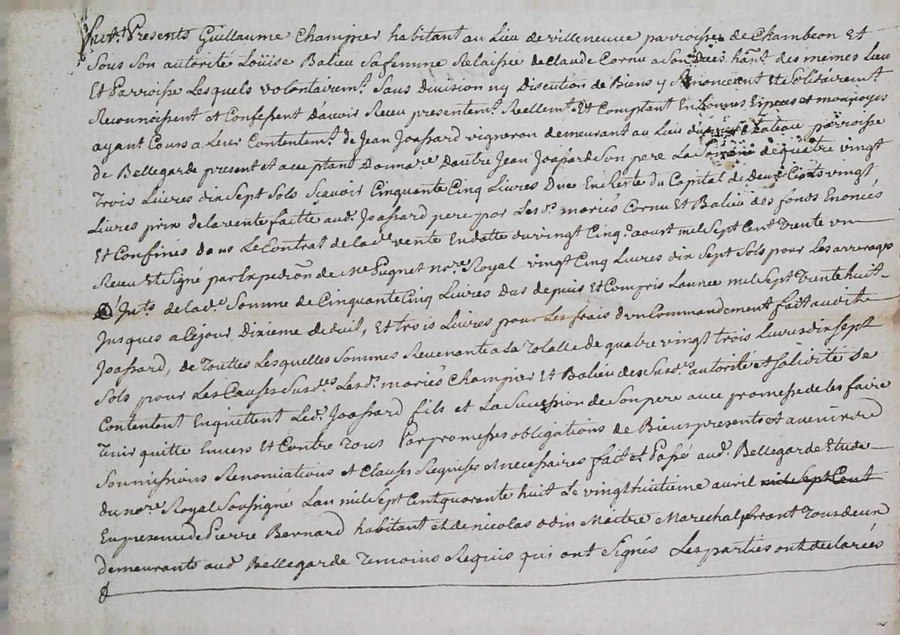 furt. Presents Guillaume Champier habitant au Lieu de villeneuve parroisse de Chambeon Et
Sous Son autorité Loüise Balieu Safemme Relaissée de Claude Cornu a Son Deces hant. des memes Lieu
Et Parroisse Lesquels volontairemt. Sans Division ny Discution de Biens y Renoncent Et Solidairemt
Reconnoissent et Confessent D'avoir Receu presentemt. Reellemt. Et Comptant En bonnes Especes et monnoyes
ayant Cours a Leur Contentemt. de Jean Joassard vigneron demeurant au Lieu du chateau parroisse
de Bellegarde present et acceptant Donnare. D'autre Jean Joassard Son pere La Somme de quatre vingt
Trois Livres dix Sept Sols Scavoir Cinquante Cinq Livres Dues En Reste du Capital de Deux Cents vingt
Livres prix de la vente faitte aud. Joassard pere par Les d. mariés Cornu Et Balieu des fonds Enoncés
Et Confinés dans Le Contrat de lade. vente En datte du vingt Cinq. aoust mil Sept Cent Trente un
Receu Et Signé par L'expedion de Me Pugnet nore. Royal vingt Cinq Livres dix Sept Sols pour Les arrerages
d'Jnts. de lade. Somme de Cinquante Cinq Livres Dus depuis Et Compris L'année mil Sept Trente huit
Jusques a Cejour Dixieme de , Et trois Livres pour Les frais d'un Commandement fait audit
Joassard, de Touttes Lesquelles Sommes Revenante a la Totalle de quatre vingt trois Livres dix Sept
Sols pour Les Causes Susdes Les d. mariés Champier Et Balieu des Susd. autorité et Solidité Se
Contentent Enquittent Led. Joassard fils et La Succession de Son pere avec promesse de les faire
Tenir quitte Envers Et Contre Tous Par promesses obligations de Biens presents et avenir
Soumissions Renonciations et Clauses Requises et necessaires fait et Passé aud. Bellegarde Etude
du nore. Royal Soussigné L'an mil Sept Cent quarante huit Le vingt huitieme avril mil Sept Cent
En presence de Pierre Bernard habitant et de nicolas odin Maitre Marechal Tous deux
demeurants aud. Bellegarde Temoins Requis qui ont Signés Les parties ont declarées